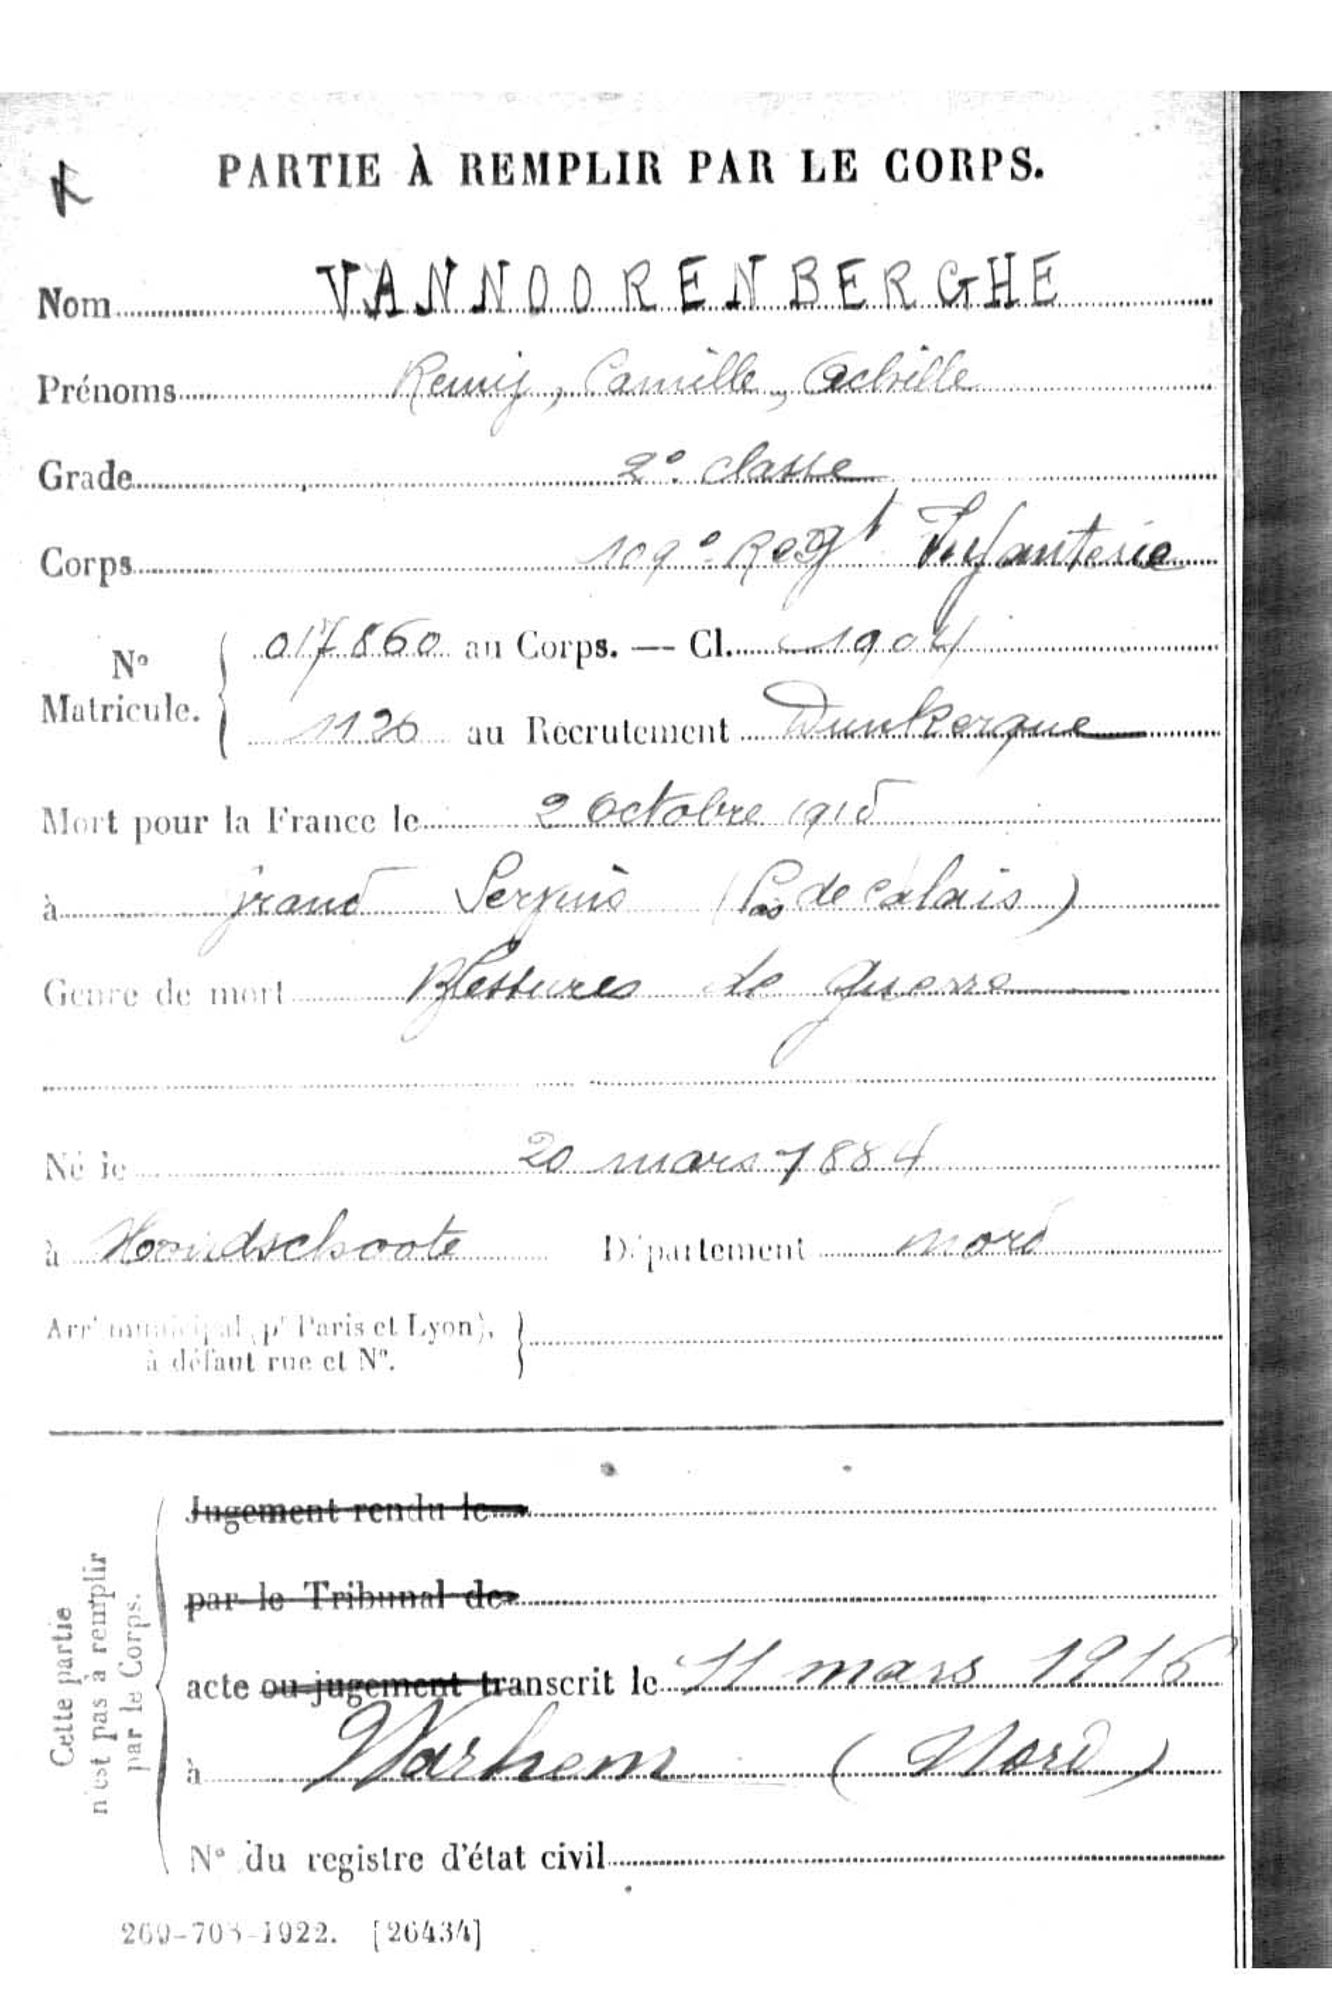 PARTIE À REMPLIR PAR LE CORPS.
Nom VANNOORENBERGHE
Prénoms Remy, Camille, Achille
Grade 2e classe
Corps 109e Regt Infanterie
No Matricule. { 017860 au Corps. — Cl. 1904
1126 au Recrutement Dunkerque
Mort pour la France le 2 Octobre 1915
à Grand Servins (Pas de Calais)
Genre de mort Blessures de guerre
Né le 20 mars 1884
à Hondschoote Département Nord
Arrt municipal (pr Paris et Lyon), à défaut rue et No. }
Cette partie n'est pas à remplir par le Corps.
Jugement rendu le
par le Tribunal de
acte ou jugement transcrit le 11 mars 1916
à Warhem (Nord)
No du registre d'état civil
269-708-1922. [26434]